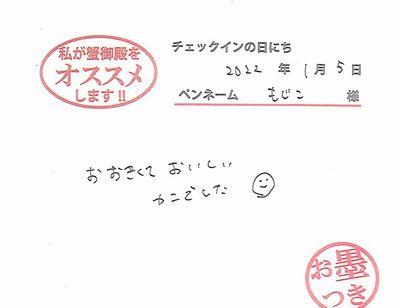 私が蟹御殿を
オススメ
します!!
チェックインの日にち
2022 年 1月 5日
ペンネーム もじこ 様
おおきくて おいしい
カニでした
お墨
つき